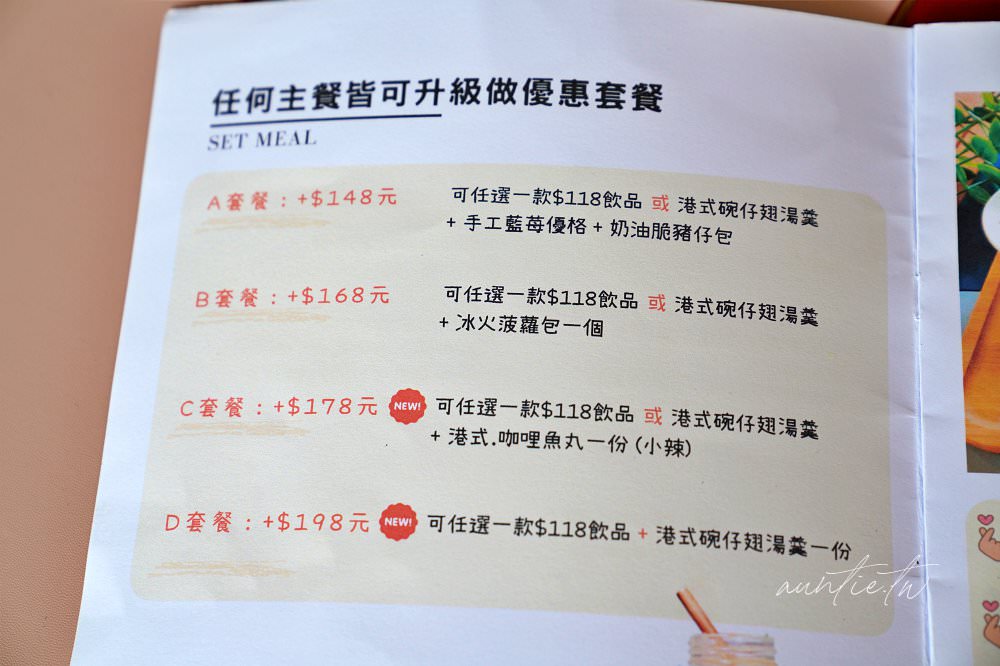 任何主餐皆可升級做優惠套餐
SET MEAL
A套餐：+$148元 可任選一款$118飲品 或 港式碗仔翅湯羹
+ 手工藍莓優格 + 奶油脆豬仔包
B套餐：+$168元 可任選一款$118飲品 或 港式碗仔翅湯羹
+ 冰火菠蘿包一個
C套餐：+$178元 NEW! 可任選一款$118飲品 或 港式碗仔翅湯羹
+ 港式.咖哩魚丸一份 (小辣)
D套餐：+$198元 NEW! 可任選一款$118飲品 + 港式碗仔翅湯羹一份
auntie.tw